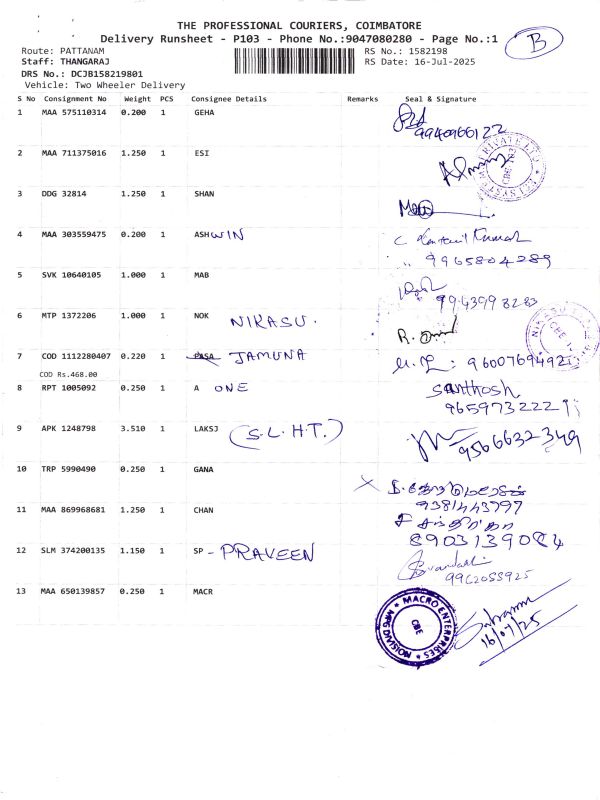 THE PROFESSIONAL COURIERS, COIMBATORE
Delivery Runsheet - P103 - Phone No.:9047080280 - Page No.:1
B
Route: PATTANAM RS No.: 1582198
Staff: THANGARAJ RS Date: 16-Jul-2025
DRS No.: DCJB158219801
Vehicle: Two Wheeler Delivery
S No Consignment No Weight PCS Consignee Details Remarks Seal & Signature
1 MAA 575110314 0.200 1 GEHA
9940966122
2 MAA 711375016 1.250 1 ESI
3 DDG 32814 1.250 1 SHAN
4 MAA 303559475 0.200 1 ASHWIN
9965804289
5 SVK 10640105 1.000 1 MAB
9943998283
6 MTP 1372206 1.000 1 NOK NIKASU.
7 COD 1112280407 0.220 1 PASA JAMUNA : 9600769492
COD Rs.468.00
8 RPT 1005092 0.250 1 A ONE Santhosh
9659732221
9 APK 1248798 3.510 1 LAKSJ (S.L.H.T.)
9566632349
10 TRP 5990490 0.250 1 GANA
9381443797
11 MAA 869968681 1.250 1 CHAN
8903139084
12 SLM 374200135 1.150 1 SP - PRAVEEN
9962055925
13 MAA 650139857 0.250 1 MACR
MACRO ENTERPRISES
CBE
MFG DIVISION
16/07/25